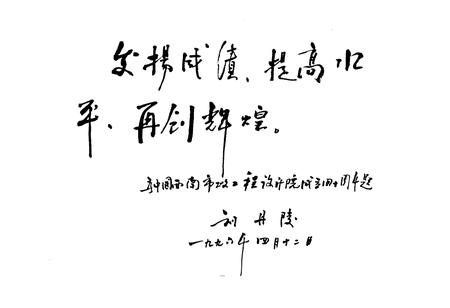 发扬成绩、提高水
平、再创辉煌。
为中国西南市政工程设计院成立四十周年题
一九九六年四月十二日